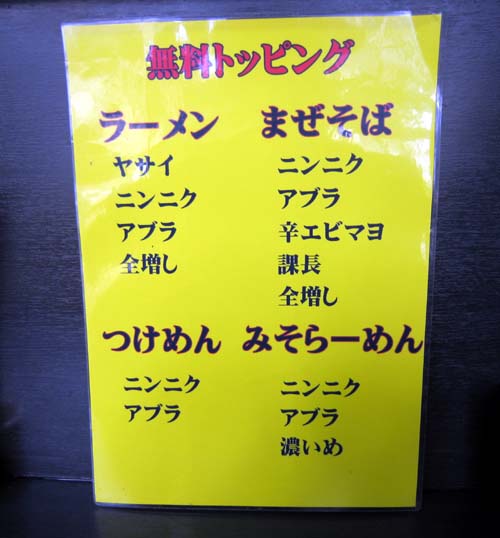 無料トッピング
ラーメン
ヤサイ
ニンニク
アブラ
全増し
まぜそば
ニンニク
アブラ
辛エビマヨ
課長
全増し
つけめん
ニンニク
アブラ
みそらーめん
ニンニク
アブラ
濃いめ